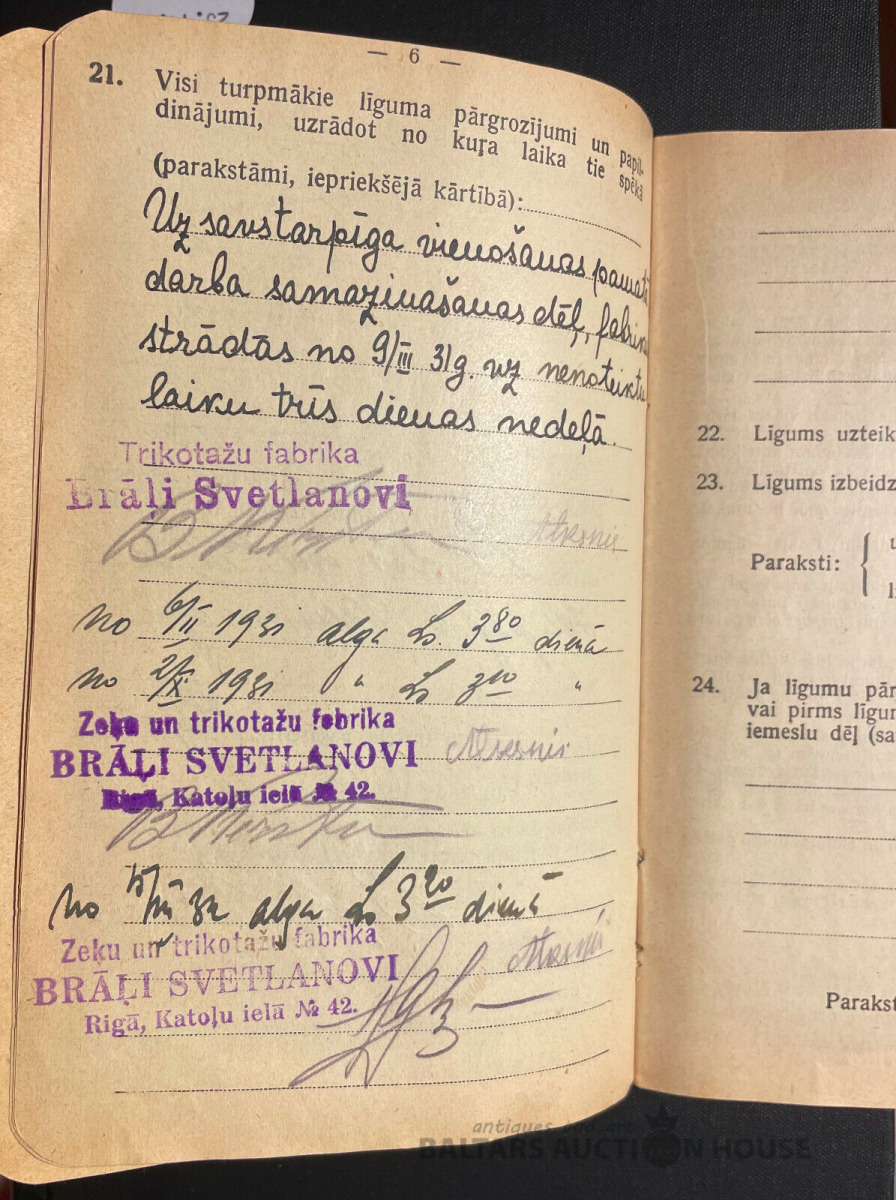 — 6 —
21. Visi turpmākie līguma pārgrozījumi un papil-
dinājumi, uzrādot no kuŗa laika tie spēkā
(parakstāmi, iepriekšējā kārtībā):
Uz savstarpīga vienošanas pamata
darba samazinašanas dēļ, fabrika
strādās no 9/III 31 g. uz nenoteiktu
laiku trīs dienas nedeļā.
Trikotažu fabrika
Brāļi Svetlanovi
no 6/II 1931 alga Ls 3 80 dienā
no 2/X 1931 " Ls 3 40 "
Zeķu un trikotažu fabrika
BRĀĻI SVETLANOVI
Rigā, Katoļu ielā № 42.
no 32 alga Ls 3 20 dienā
Zeķu un trikotažu fabrika
BRĀĻI SVETLANOVI
Rigā, Katoļu ielā № 42.
22. Līgums uzteik
23. Līgums izbeidz
Paraksti: {
24. Ja līgumu pār
vai pirms līgur
iemeslu dēļ (sa
Parakst
antiques and art
BALTARS AUCTION HOUSE